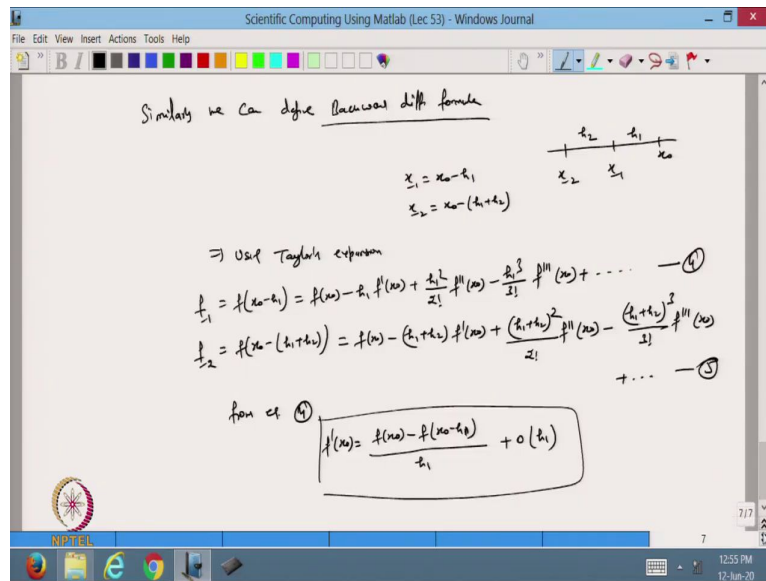 Scientific Computing Using Matlab (Lec 53) - Windows Journal
File Edit View Insert Actions Tools Help
Similarly we can define Backward diff formula
h₂ h₁
x₋₂ x₋₁ x₀
x₋₁ = x₀-h₁
x₋₂ = x₀-(h₁+h₂)
⇒ Use Taylor's expansion
f₋₁ = f(x₀-h₁) = f(x₀) - h₁ f'(x₀) + h₁²/2! f''(x₀) - h₁³/3! f'''(x₀) + ---- —④
f₋₂ = f(x₀-(h₁+h₂)) = f(x₀) - (h₁+h₂) f'(x₀) + (h₁+h₂)²/2! f''(x₀) - (h₁+h₂)³/3! f'''(x₀)
+ ... —⑤
from eq ④
f'(x₀) = (f(x₀) - f(x₀-h₁))/h₁ + O(h₁)
7/7
NPTEL
7
12:55 PM
12-Jun-20